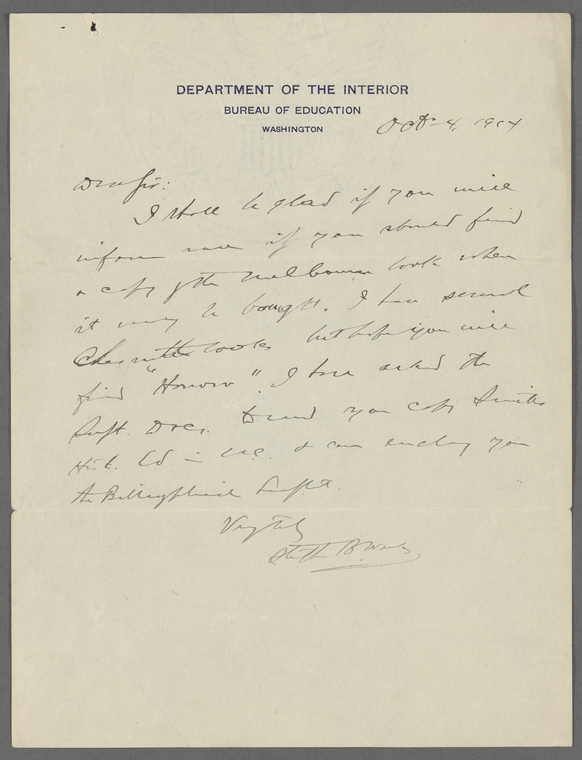 DEPARTMENT OF THE INTERIOR
BUREAU OF EDUCATION
WASHINGTON
Oct 4, 1914
Dear Sir:
I shall be glad if you will
inform me if you should find
a copy of the Melbourne book when
it may be bought. I have several
books but hope you will
find "Honoro". I have asked the
Supt. Docs. to send you copy Smith's
Hist. Ed. in N.C. & am sending you
the Bibliographical
Very truly
Stephen B Weeks